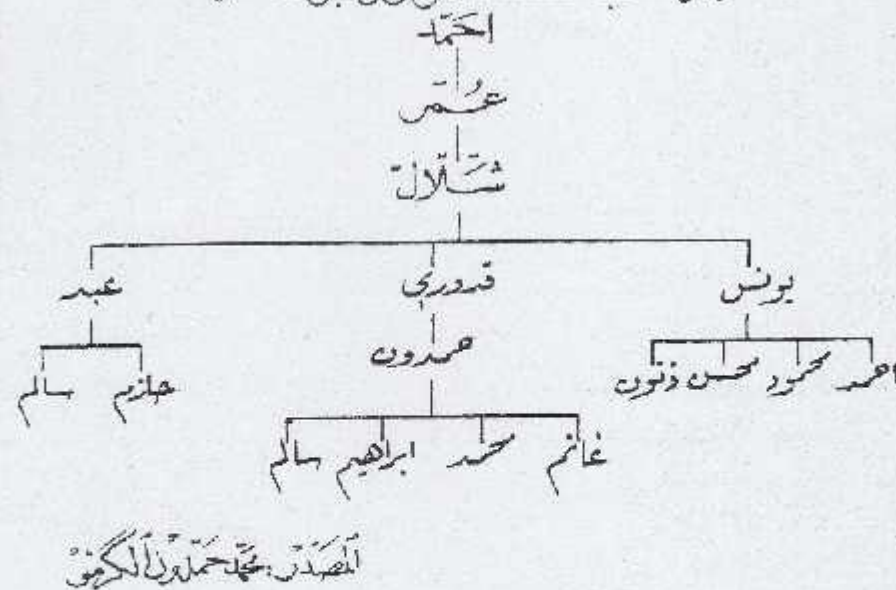 احمد
عمر
شلال
يونس قدوري عبد
احمد محمود محسن ذنون حمدون حازم سالم
غانم محمد ابراهيم سالم
المصدر: محمد حمدون